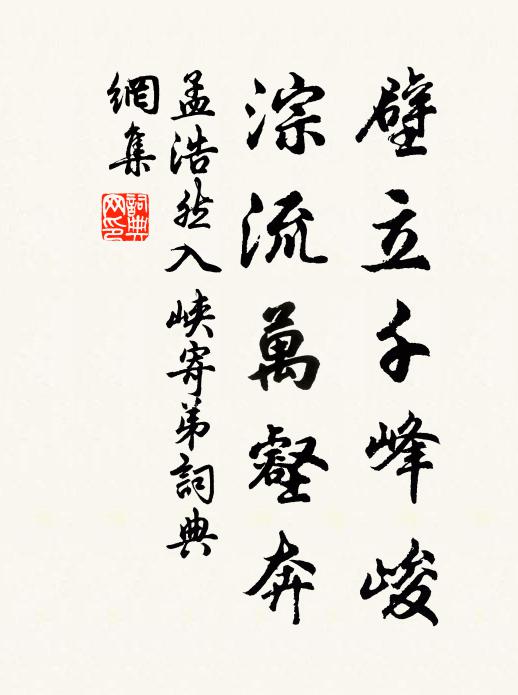 壁立千峰峻
淙流萬壑奔
孟浩然入峽寄弟詞典
網集
詞典
网印